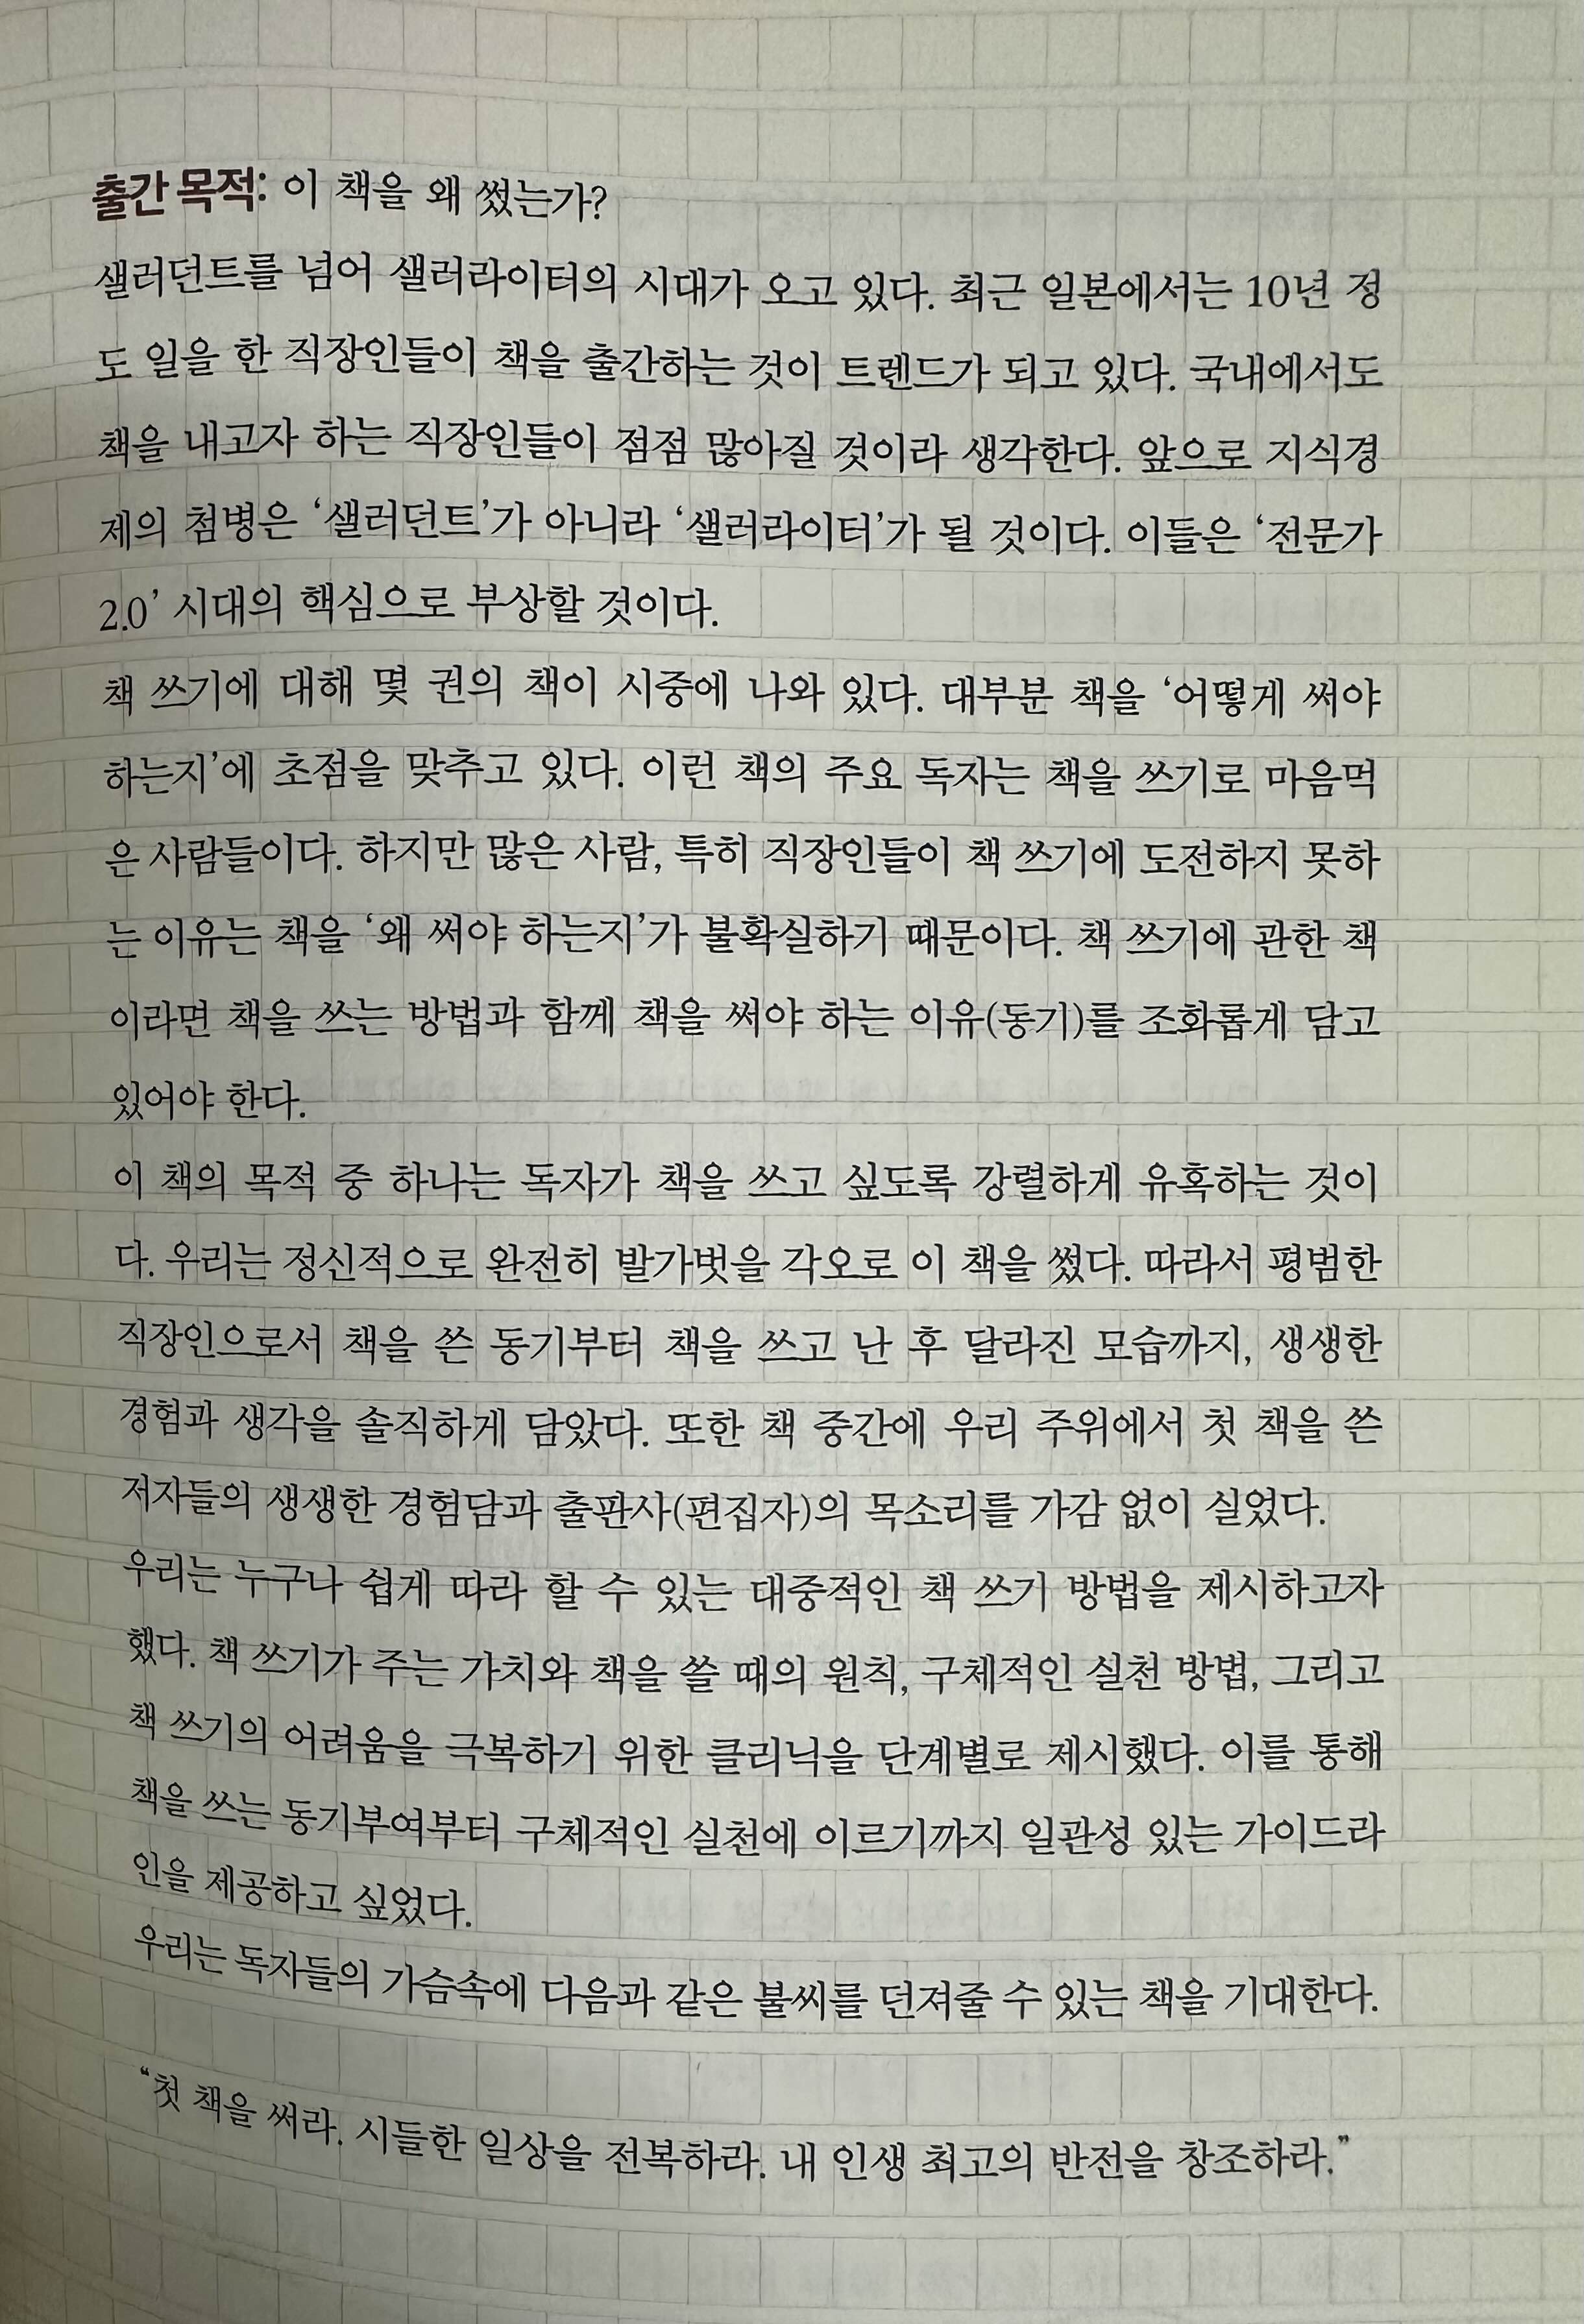 출간 목적: 이 책을 왜 썼는가?
샐러던트를 넘어 샐러라이터의 시대가 오고 있다. 최근 일본에서는 10년 정
도 일을 한 직장인들이 책을 출간하는 것이 트렌드가 되고 있다. 국내에서도
책을 내고자 하는 직장인들이 점점 많아질 것이라 생각한다. 앞으로 지식경
제의 첨병은 ‘샐러던트’가 아니라 ‘샐러라이터’가 될 것이다. 이들은 ‘전문가
2.0’ 시대의 핵심으로 부상할 것이다.
책 쓰기에 대해 몇 권의 책이 시중에 나와 있다. 대부분 책을 ‘어떻게 써야
하는지’에 초점을 맞추고 있다. 이런 책의 주요 독자는 책을 쓰기로 마음먹
은 사람들이다. 하지만 많은 사람, 특히 직장인들이 책 쓰기에 도전하지 못하
는 이유는 책을 ‘왜 써야 하는지’가 불확실하기 때문이다. 책 쓰기에 관한 책
이라면 책을 쓰는 방법과 함께 책을 써야 하는 이유(동기)를 조화롭게 담고
있어야 한다.
이 책의 목적 중 하나는 독자가 책을 쓰고 싶도록 강렬하게 유혹하는 것이
다. 우리는 정신적으로 완전히 발가벗을 각오로 이 책을 썼다. 따라서 평범한
직장인으로서 책을 쓴 동기부터 책을 쓰고 난 후 달라진 모습까지, 생생한
경험과 생각을 솔직하게 담았다. 또한 책 중간에 우리 주위에서 첫 책을 쓴
저자들의 생생한 경험담과 출판사(편집자)의 목소리를 가감 없이 실었다.
우리는 누구나 쉽게 따라 할 수 있는 대중적인 책 쓰기 방법을 제시하고자
했다. 책 쓰기가 주는 가치와 책을 쓸 때의 원칙, 구체적인 실천 방법, 그리고
책 쓰기의 어려움을 극복하기 위한 클리닉을 단계별로 제시했다. 이를 통해
책을 쓰는 동기부여부터 구체적인 실천에 이르기까지 일관성 있는 가이드라
인을 제공하고 싶었다.
우리는 독자들의 가슴속에 다음과 같은 불씨를 던져줄 수 있는 책을 기대한다.
“첫 책을 써라. 시들한 일상을 전복하라. 내 인생 최고의 반전을 창조하라.”